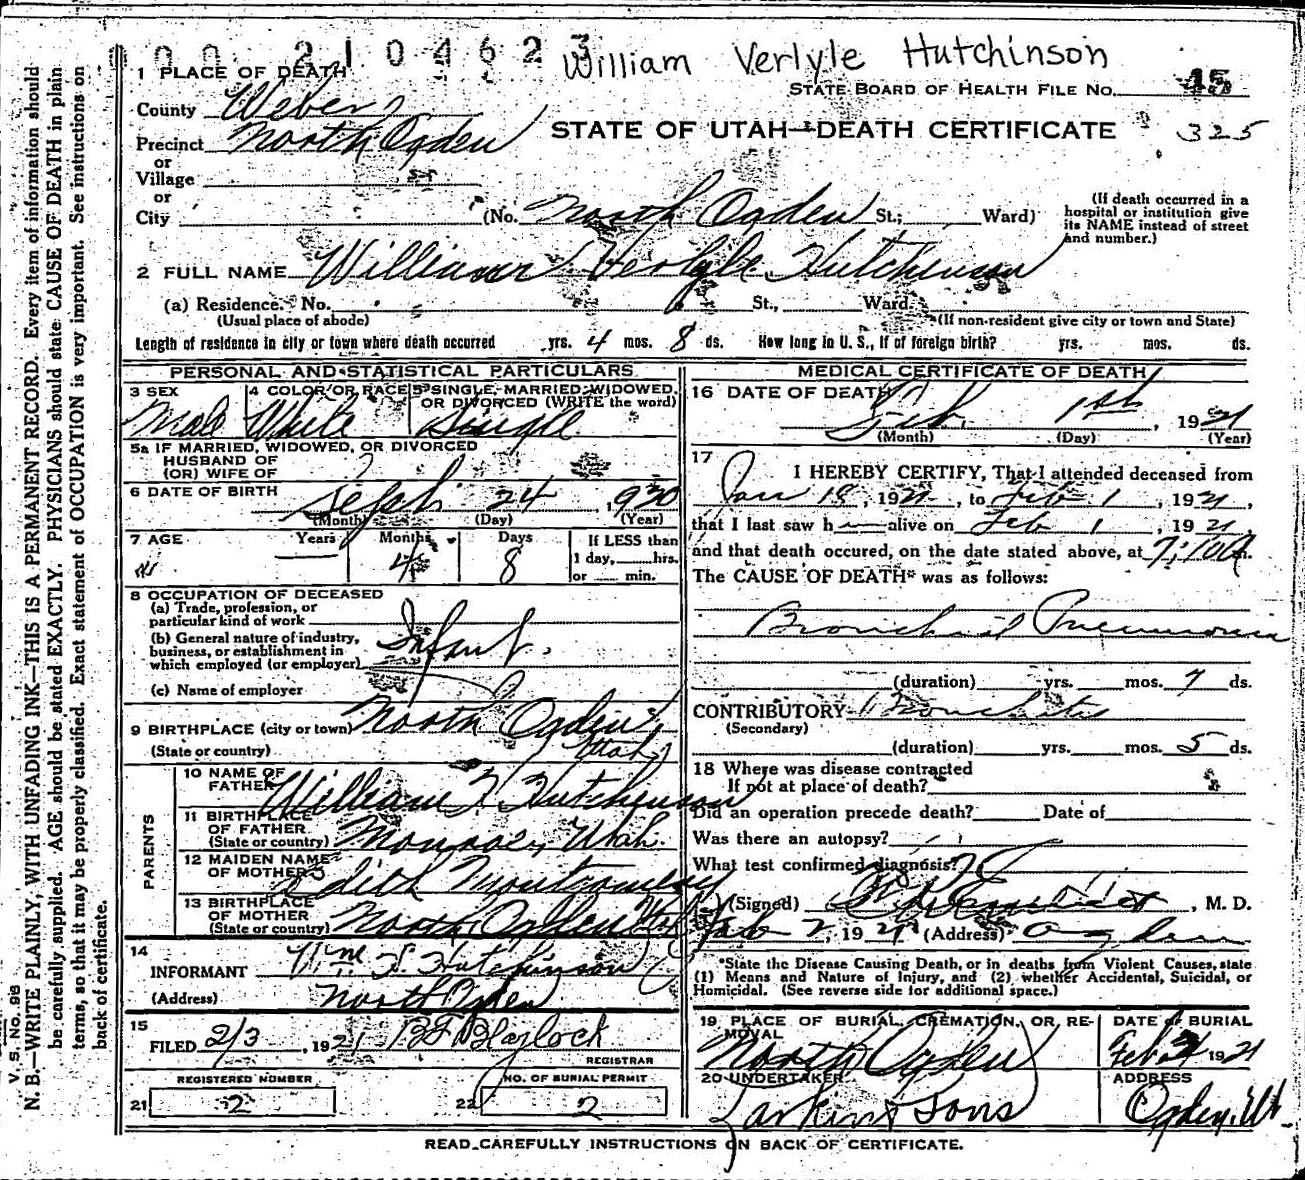 210462
William Verlyle Hutchinson
1 PLACE OF DEATH
STATE BOARD OF HEALTH FILE No. 45
County Weber
STATE OF UTAH—DEATH CERTIFICATE 325
Precinct North Ogden
or
Village
or
City (No. North Ogden St.; Ward)
(If death occurred in a hospital or institution give its NAME instead of street and number.)
2 FULL NAME William Verlyle Hutchinson
(a) Residence. No. St., Ward.
(Usual place of abode) (If non-resident give city or town and State)
Length of residence in city or town where death occurred yrs. 4 mos. 8 ds. How long in U. S., if of foreign birth? yrs. mos. ds.
PERSONAL AND STATISTICAL PARTICULARS
3 SEX Male
4 COLOR OR RACE White
5 SINGLE, MARRIED, WIDOWED, OR DIVORCED (WRITE the word) Single
5a IF MARRIED, WIDOWED, OR DIVORCED
HUSBAND OF
(OR) WIFE OF
6 DATE OF BIRTH Sept 24, 1920
(Month) (Day) (Year)
7 AGE Years Months 4 Days 8
If LESS than 1 day, hrs. or min.
8 OCCUPATION OF DECEASED
(a) Trade, profession, or particular kind of work
(b) General nature of industry, business, or establishment in which employed (or employer)
Infant.
(c) Name of employer
9 BIRTHPLACE (city or town) North Ogden,
(State or country) Utah
PARENTS
10 NAME OF FATHER William H Hutchinson
11 BIRTHPLACE OF FATHER (State or country) Monroe, Utah.
12 MAIDEN NAME OF MOTHER Edith Montgomery
13 BIRTHPLACE OF MOTHER (State or country) North Ogden Ut
14
INFORMANT Wm H Hutchinson
(Address) North Ogden.
15
FILED 2/3, 1921 Blaylock
REGISTRAR
REGISTERED NUMBER
21 2
NO. OF BURIAL PERMIT
22 2
MEDICAL CERTIFICATE OF DEATH
16 DATE OF DEATH
Feb. 1st, 1921
(Month) (Day) (Year)
17
I HEREBY CERTIFY, That I attended deceased from
Jan 18, 1921, to Feb 1, 1921,
that I last saw h alive on Feb 1, 1921,
and that death occured, on the date stated above, at m.
The CAUSE OF DEATH* was as follows:
Bronchial Pneumonia
(duration) yrs. mos. 7 ds.
CONTRIBUTORY Bronchitis
(Secondary)
(duration) yrs. mos. 5 ds.
18 Where was disease contracted
If not at place of death?
Did an operation precede death? Date of
Was there an autopsy?
What test confirmed diagnosis?
(Signed) , M. D.
Feb 2, 1921 (Address) Ogden
*State the Disease Causing Death, or in deaths from Violent Causes, state (1) Means and Nature of Injury, and (2) whether Accidental, Suicidal, or Homicidal. (See reverse side for additional space.)
19 PLACE OF BURIAL, CREMATION, OR REMOVAL North Ogden
DATE of BURIAL Feb 1921
20 UNDERTAKER Larkin & Sons
ADDRESS Ogden, Ut.
READ CAREFULLY INSTRUCTIONS ON BACK OF CERTIFICATE.
V. S. No. 98
N. B.—WRITE PLAINLY, WITH UNFADING INK—THIS IS A PERMANENT RECORD. Every item of information should
be carefully supplied. AGE should be stated EXACTLY. PHYSICIANS should state CAUSE OF DEATH in plain
terms, so that it may be properly classified. Exact statement of OCCUPATION is very important. See instructions on
back of certificate.